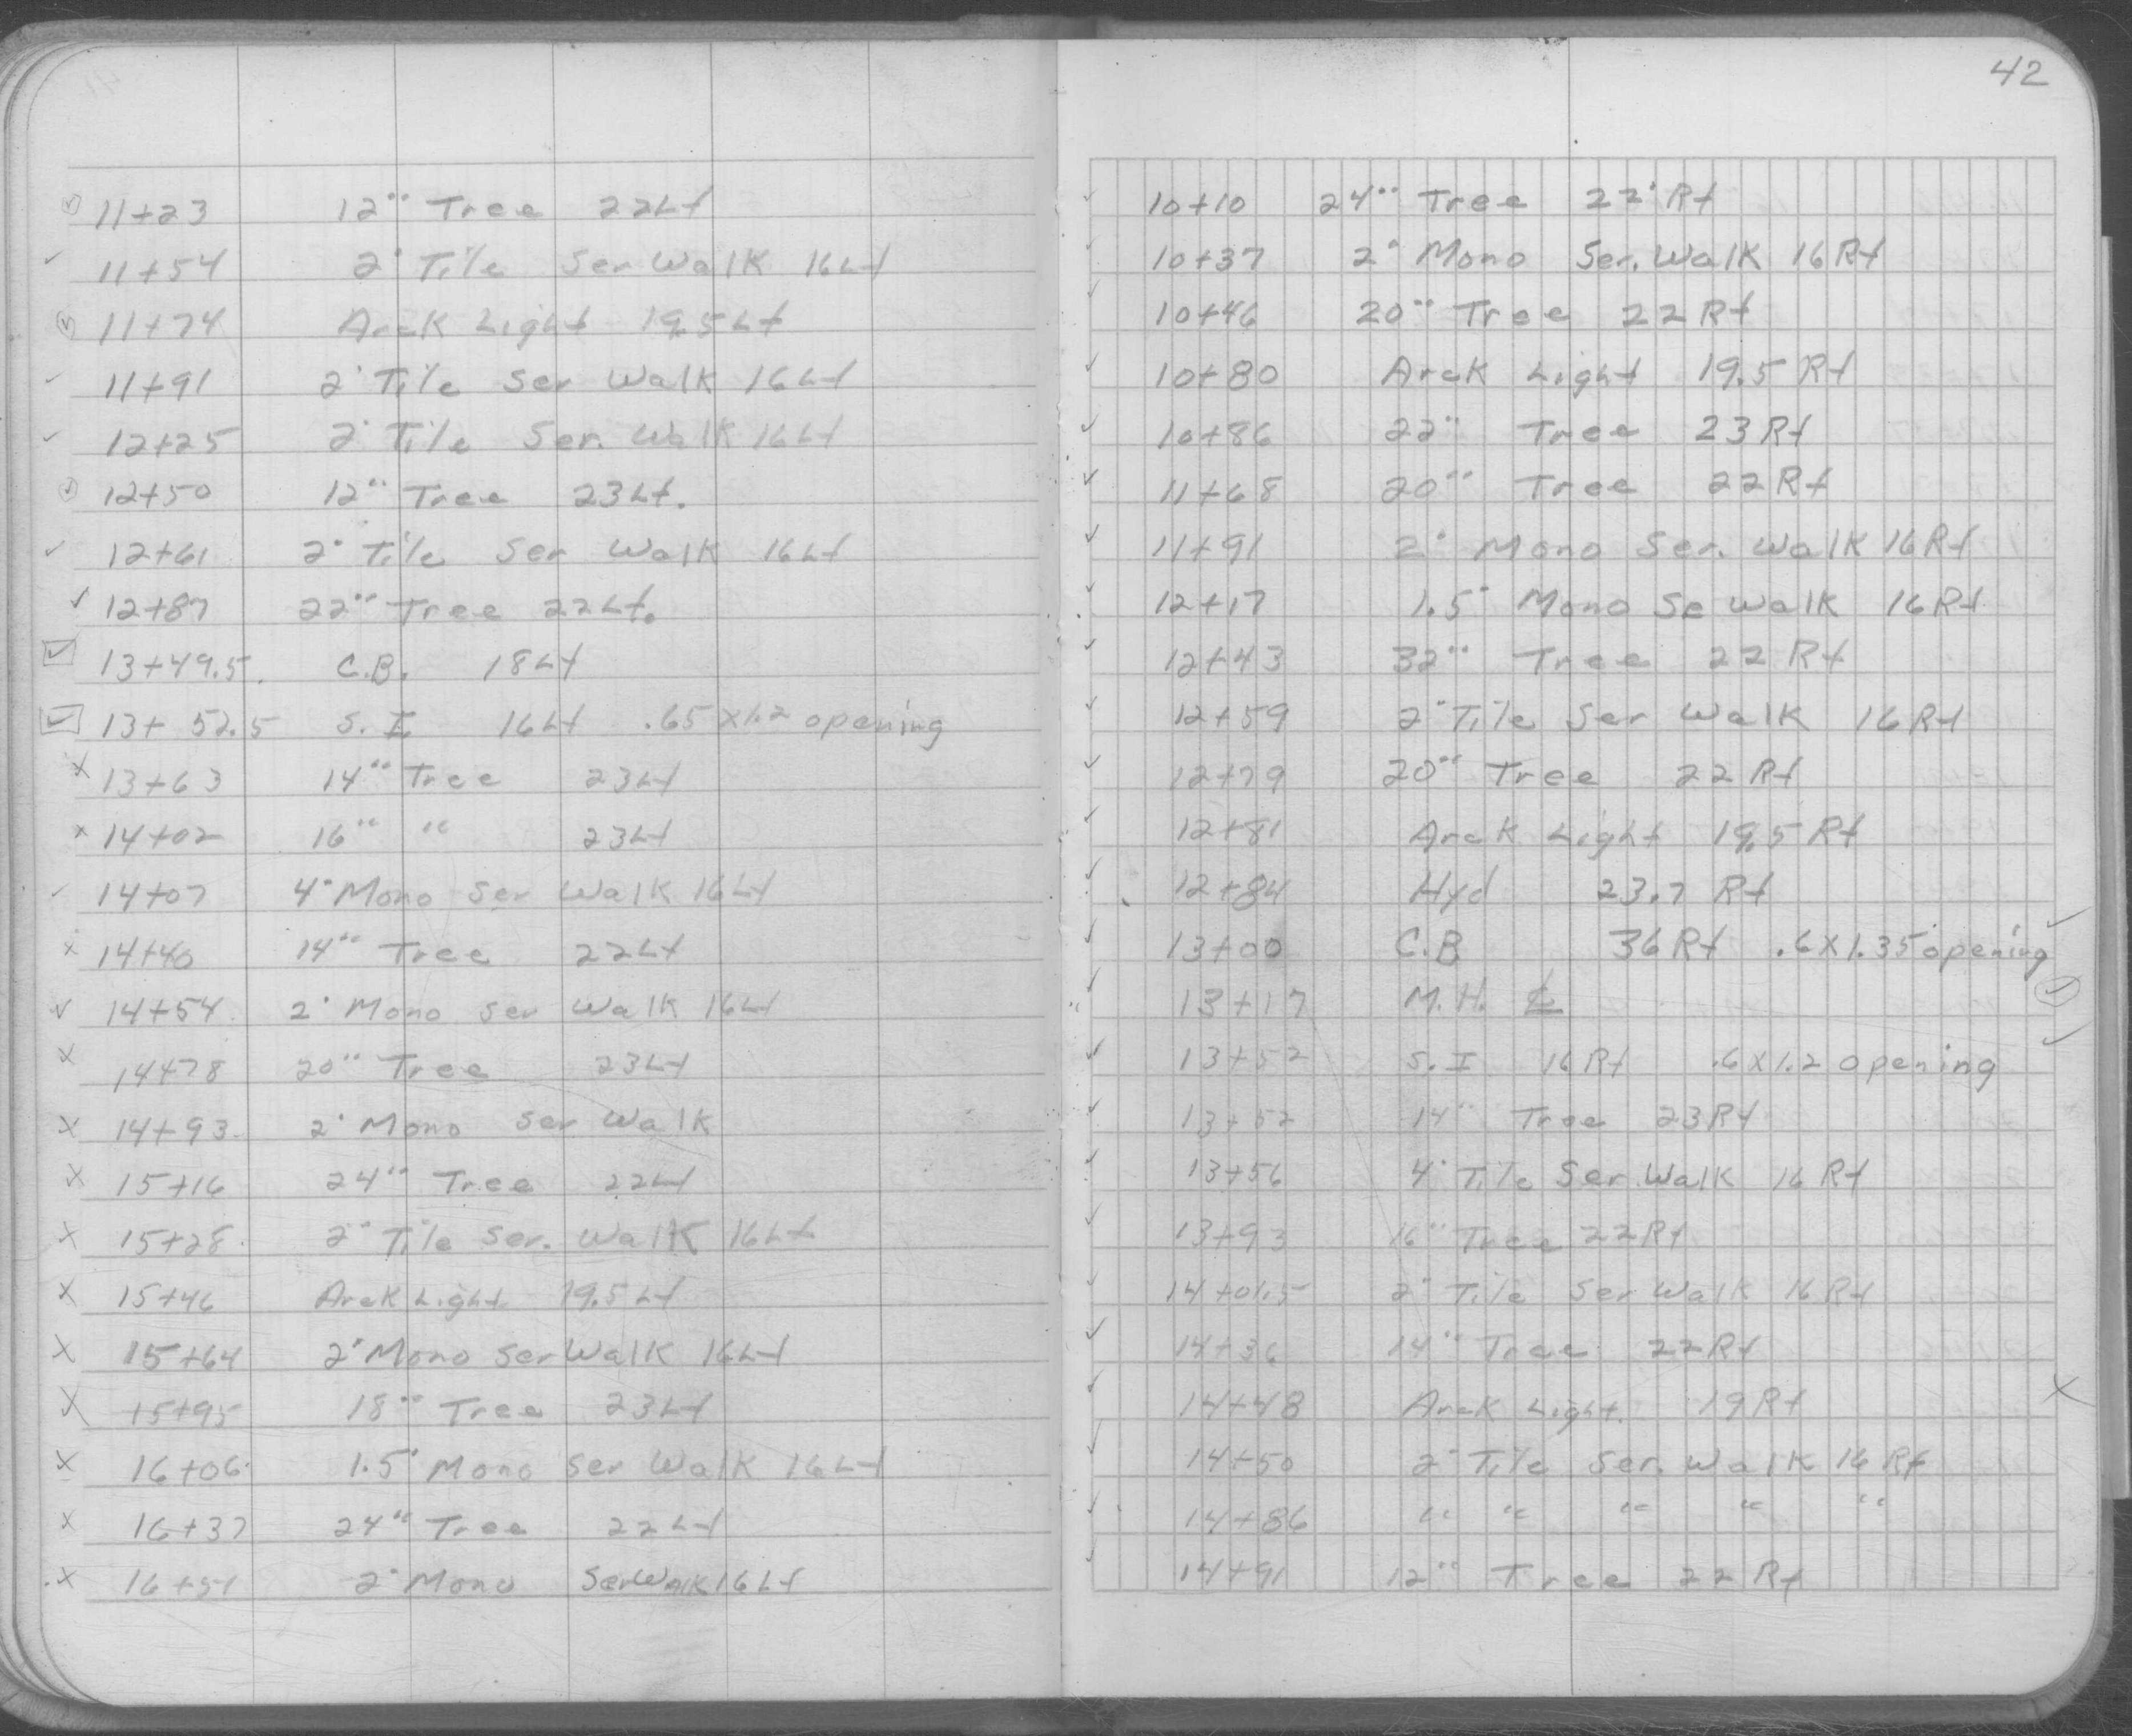 11+23 12" Tree 22Lt
11+54 2' Tile Ser Walk 16Lt
11+74 Arck Light 19.5Lt
11+91 2' Tile Ser Walk 16Lt
12+25 2' Tile Ser. Walk 16Lt
12+50 12" Tree 23Lt.
12+61 2' Tile Ser Walk 16Lt
12+87 22" Tree 22Lt.
13+49.5 C.B. 18Lt
13+52.5 S.I 16Lt .65x1.2 opening
13+63 14" Tree 23Lt
14+02 16" " 23Lt
14+07 4' Mono Ser Walk 16Lt
14+40 14" Tree 22Lt
14+54 2' Mono Ser Walk 16Lt
14+78 20" Tree 23Lt
14+93 2' Mono Ser Walk
15+16 24" Tree 22Lt
15+28 2' Tile Ser. Walk 16Lt
15+46 Arck Light 19.5Lt
15+64 2' Mono Ser Walk 16Lt
15+95 18" Tree 23Lt
16+06 1.5' Mono Ser Walk 16Lt
16+37 24" Tree 22Lt
16+51 2' Mono Ser Walk 16Lt
42
10+10 24" Tree 22' Rt
10+37 2' Mono Ser. Walk 16Rt
10+46 20" Tree 22Rt
10+80 Arck Light 19.5 Rt
10+86 22" Tree 23Rt
11+68 20" Tree 22Rt
11+91 2' Mono Ser. Walk 16Rt
12+17 1.5' Mono Se Walk 16Rt
12+43 32" Tree 22 Rt
12+59 2' Tile Ser Walk 16Rt
12+79 20" Tree 22 Rt
12+81 Arck Light 19.5 Rt
12+84 Hyd 23.7 Rt
13+00 C.B 36Rt .6x1.35 opening
13+17 M.H. ℄
13+52 S.I 16Rt .6x1.2 opening
13+52 14" Tree 23Rt
13+56 4' Tile Ser. Walk 16 Rt
13+93 16" Tree 22Rt
14+01.5 2' Tile Ser Walk 16Rt
14+36 14" Tree 22Rt
14+48 Arck Light 19Rt
14+50 2' Tile Ser. Walk 16 Rt
14+86 " " " " "
14+91 12" Tree 22 Rt